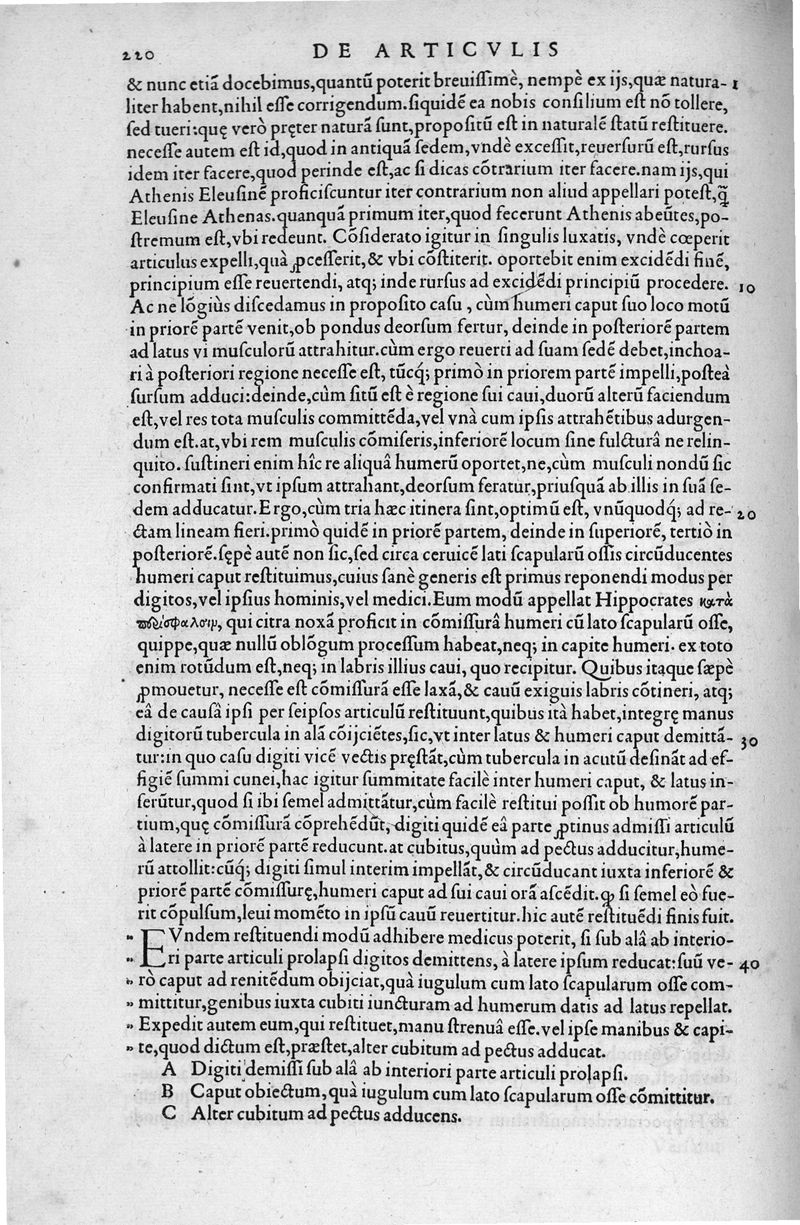 220 DE ARTICVLIS
& nunc etiã docebimus,quantũ poterit breuissimè, nempè ex ijs,quæ natura- 1
liter habent,nihil esse corrigendum.siquidẽ ea nobis consilium est nõ tollere,
sed tueri:quę verò pręter naturã sunt,propositũ est in naturalẽ statũ restituere.
necesse autem est id,quod in antiquã sedem,vndè excessit,reuersurũ est,rursus
idem iter facere,quod perinde est,ac si dicas cõtrarium iter facere.nam ijs,qui
Athenis Eleusinẽ proficiscuntur iter contrarium non aliud appellari potest,q̃
Eleusine Athenas.quanquã primum iter,quod fecerunt Athenis abeũtes,po-
stremum est,vbi redeunt. Cõsiderato igitur in singulis luxatis, vndè cœperit
articulus expelli,quà ꝓcesserit,& vbi cõstiterit. oportebit enim excidẽdi finẽ,
principium esse reuertendi, atq; inde rursus ad excidẽdi principiũ procedere. 10
Ac ne lõgiùs discedamus in proposito casu , cùm humeri caput suo loco motũ
in priorẽ partẽ venit,ob pondus deorsum fertur, deinde in posteriorẽ partem
ad latus vi musculorũ attrahitur.cùm ergo reuerti ad suam sedẽ debet,inchoa-
ri à posteriori regione necesse est, tũcq; primò in priorem partẽ impelli,posteà
sursum adduci:deinde,cùm sitũ est è regione sui caui,duorũ alterũ faciendum
est,vel res tota musculis committẽda,vel vnà cum ipsis attrahẽtibus adurgen-
dum est.at,vbi rem musculis cõmiseris,inferiorẽ locum sine fulcturâ ne relin-
quito. sustineri enim hîc re aliquâ humerũ oportet,ne,cùm musculi nondũ sic
confirmati sint,vt ipsum attrahant,deorsum feratur,priusquã ab illis in suã se-
dem adducatur.Ergo,cùm tria hæc itinera sint,optimũ est, vnũquodq; ad re- 20
ctam lineam fieri.primò quidẽ in priorẽ partem, deinde in superiorẽ, tertiò in
posteriorẽ.sępè autẽ non sic,sed circa ceruicẽ lati scapularũ ossis circũducentes
humeri caput restituimus,cuius sanè generis est primus reponendi modus per
digitos,vel ipsius hominis,vel medici.Eum modũ appellat Hippocrates κατὰ
qui citra noxã proficit in cõmissurâ humeri cũ lato scapularũ osse,
quippe,quæ nullũ oblõgum processum habeat,neq; in capite humeri. ex toto
enim rotũdum est,neq; in labris illius caui, quo recipitur. Quibus itaque sæpè
ꝓmouetur, necesse est cõmissurã esse laxã,& cauũ exiguis labris cõtineri, atq;
eâ de causâ ipsi per seipsos articulũ restituunt,quibus ità habet,integrę manus
digitorũ tubercula in alã cõijciẽtes,sic,vt inter latus & humeri caput demittã- 30
tur:in quo casu digiti vicẽ vectis pręstãt,cùm tubercula in acutũ desinãt ad ef-
figiẽ summi cunei,hac igitur summitate facilè inter humeri caput, & latus in-
serũtur,quod si ibi semel admittãtur,cùm facilè restitui possit ob humorẽ par-
tium,quę cõmissurã cõprehẽdũt, digiti quidẽ eâ parte ꝓtinus admissi articulũ
à latere in priorẽ partẽ reducunt.at cubitus,quùm ad pectus adducitur,hume-
rũ attollit:cũq; digiti simul interim impellãt,& circũducant iuxta inferiorẽ &
priorẽ partẽ cõmissurę,humeri caput ad sui caui orã ascẽdit.ꝙ si semel eò fue-
rit cõpulsum,leui momẽto in ipsũ cauũ reuertitur.hic autẽ restituẽdi finis fuit.
" EVndem restituendi modũ adhibere medicus poterit, si sub alâ ab interio-
" ri parte articuli prolapsi digitos demittens, à latere ipsum reducat:suũ ve- 40
" rò caput ad renitẽdum obijciat,quà iugulum cum lato scapularum osse com-
" mittitur,genibus iuxta cubiti iuncturam ad humerum datis ad latus repellat.
" Expedit autem eum,qui restituet,manu strenuâ esse.vel ipse manibus & capi-
" te,quod dictum est,præstet,alter cubitum ad pectus adducat.
A Digiti demissi sub alâ ab interiori parte articuli prolapsi.
B Caput obiectum,quà iugulum cum lato scapularum osse cõmittitur.
C Alter cubitum ad pectus adducens.